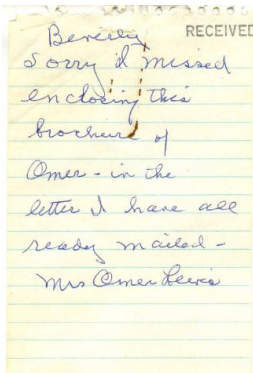 Beverly
RECEIVED
Sorry I missed
enclosing this
brochure of
Omer - in the
letter I have all
ready mailed -
Mrs Omer Lewis